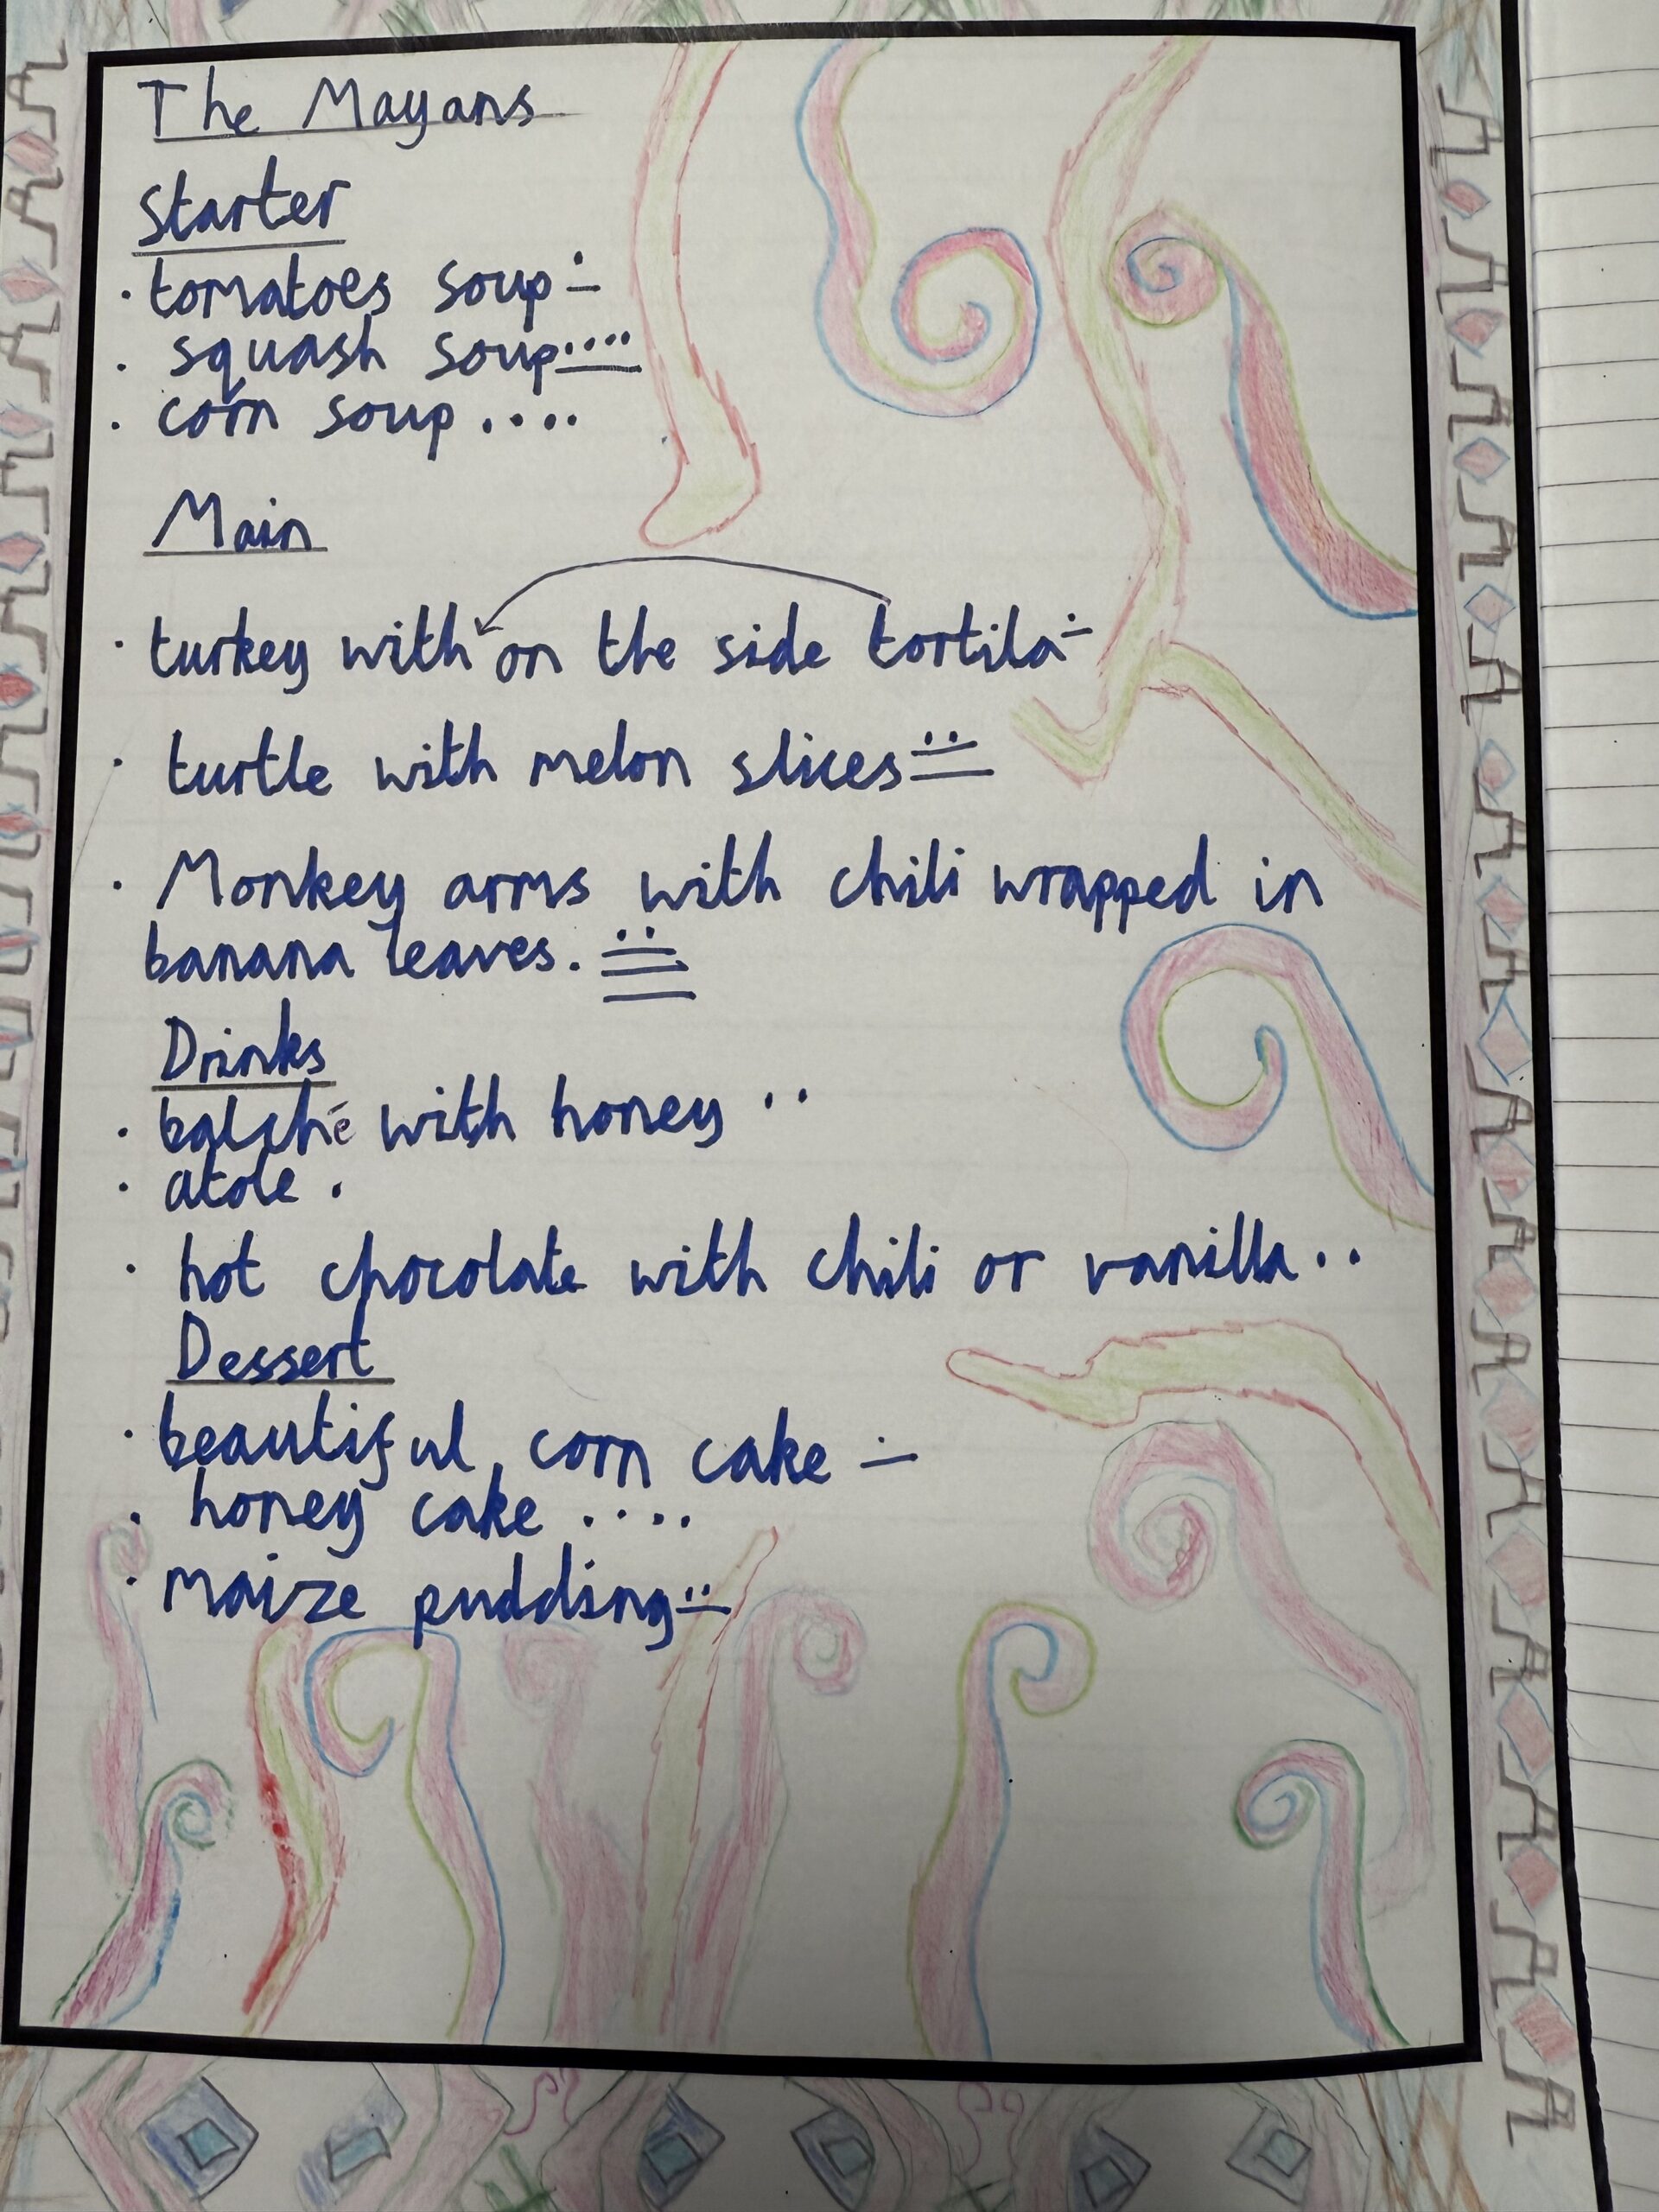 The Mayans
Starter
· tomatoes soup
· squash soup
· corn soup ....
Main
· turkey with on the side tortila
· turtle with melon slices
· Monkey arms with chili wrapped in
banana leaves.
Drinks
· balché with honey ..
· atole .
· hot chocolate with chili or vanilla..
Dessert
· beautiful corn cake
· honey cake ....
· maize pudding